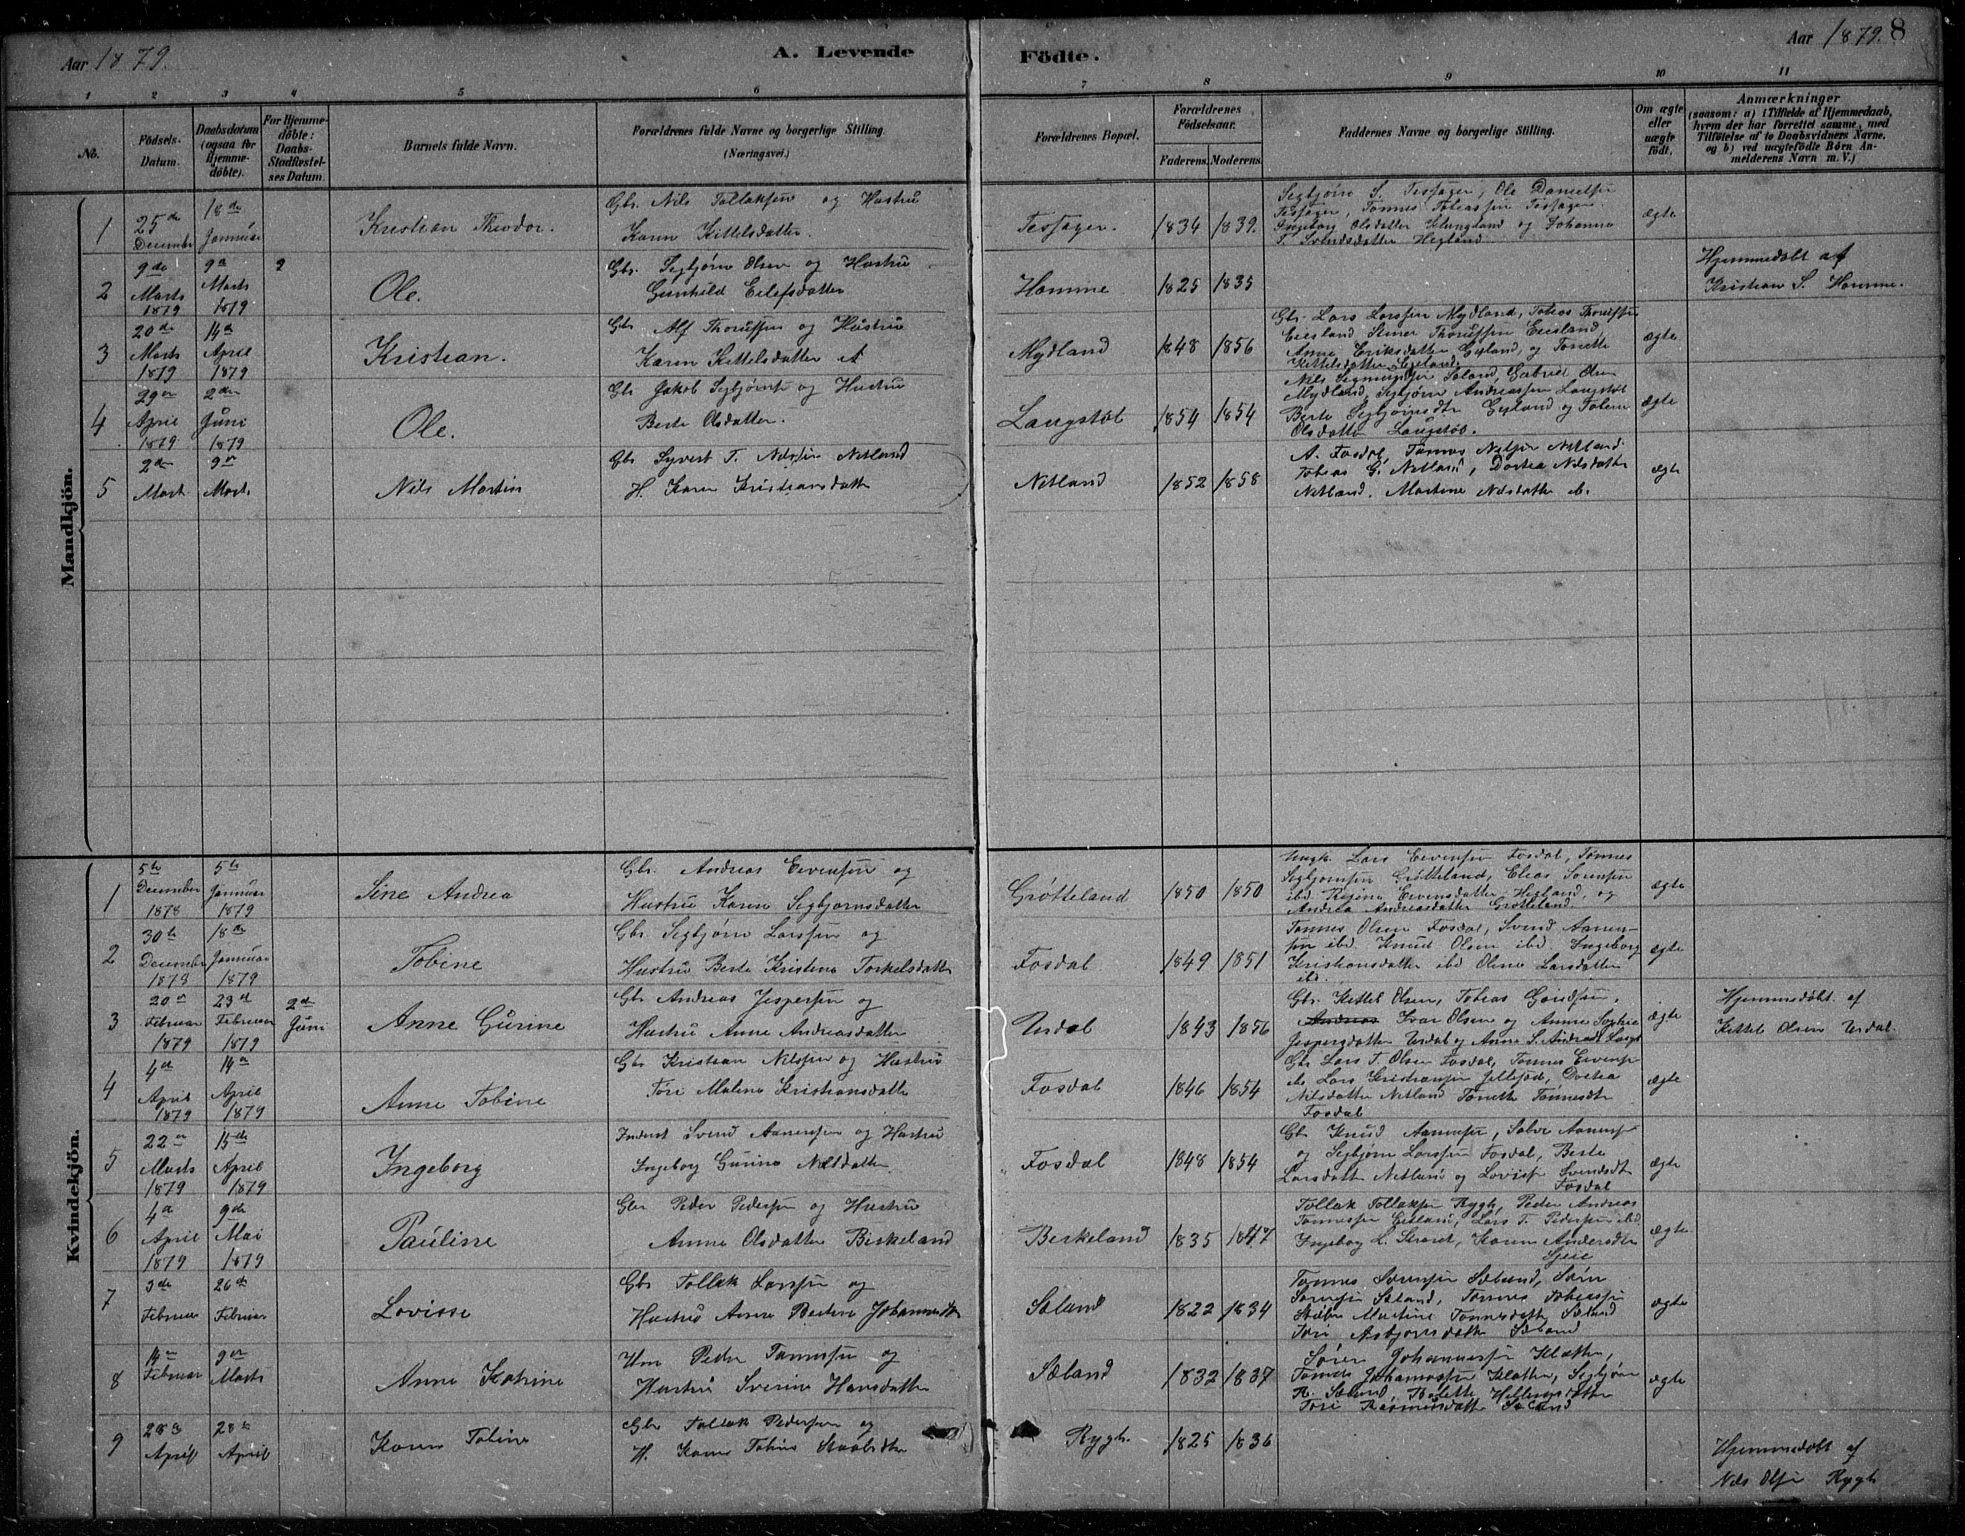 Aar 1879.
A. Levende Födte.
Aar 1879. 8
1 2 3 4 5 6 7 8 9 10 11
No.
Födsels-Datum.
Daabsdatum (ogsaa for Hjemme-döbte).
For Hjemme-döbte: Daabs-Stadfæstel-ses Datum.
Barnets fulde Navn.
Forældrenes fulde Navne og borgerlige Stilling. (Næringsvei.)
Forældrenes Bopæl.
Forældrenes Födselsaar.
Faderens. Moderens.
Faddernes Navne og borgerlige Stilling.
Om ægte eller uægte födt.
Anmærkninger
(saasom: a) i Tilfælde af Hjemmedaab, hvem der har forrettet samme, med Tilföielse af to Daabsvidners Navne, og b) ved uægtefödte Börn An-melderens Navn m. V.)
Mandkjön.
1 25de December 18de Januar Kristian Theodor. Gbr. Nils Tollaksen og Hustru
Karen Kittelsdatter. Tesager. 1834 1839.
Segbjørn S. Tesager, Ole Danielsen
Tesager, Tønnes Tobiassen Tesager
Ingeborg Olsdatter og Johanna
Hegland ægte
2 9de Marts 1879 9de Marts 1879 Ole. Gbr. Segbjørn Olsen og Hustru
Gunhild Eilefsdatter Homme 1825 1835
Hjemmedøbt af
Kristian S. Homme.
3 20de Marts 1879 14de April 1879 Kristian. Gbr Alf Thorussen og Hustru
Karen Kittelsdatter Mydland 1848 1856
Gbr. Lars Larssen Mydland, Tobias Thorussen
Eieland Thorussen Eieland,
Anne Eriksdatter Eyland, og Tonette
Kittelsdatter ægte
4 29de April 1879 2den Juni 1879 Ole. Gbr Jakob Segbjørns og Hustru
Berte Olsdatter. Langstøl 1854 1854
Nils Sæland, Gabriel Olsen
Mydland, Segbjørn Andreassen Langstøl
Berte Segbjørnsdtr Eyland og
Olsdatter Langstøl. ægte
5 2de Mart 9de Mart. Nils Martin Gbr Syvert T. Nilsen Netland
H. Karen Kristiansdatter Netland 1852 1858
A. Fosdal Tønnes Nilsen Netland
Tobias G. Netland, Dortea Nilsdatter
Netland. Martine Nilsdatter ib. ægte
Kvindekjön.
1 5te December 1878 5te Januar 1879 Sine Andrea Gbr. Andreas Eivensen og
Hustru Karen Segbjørnsdatter Grøtteland 1850 1850
Ungk. Lars Eivensen Fosdal, Tønnes
Segbjørnsen Grøtteland, Elias Sørensen
ibd Regine Eivensdatter Hegland, og
Andrea Andreasdatter Grøtteland ægte
2 30te December 1878 18de Januar 1879 Tobine Gbr Segbjørn Larssen og
Hustru Berte Kristine Torkelsdatter Fosdal 1849 1851
Tønnes Olsen Fosdal, Svend Aanen-
sen ibd. Knud Olsen ibd. Ingeborg
Kristiansdatter ibd Olene Larsdatter
ibd. ægte
3 20de Februar 1879 23de Februar 1879 2de Juni Anne Gurine Gbr Andreas Jespersen og
Hustru Anne Andreasdatter Urdal 1843 1856
Gbr. Kittel Olsen, Tobias
Andreas Ivar Olsen og Anne Sophie
Jespersdatter Urdal og Anne S. Andreasd ægte
Hjemmedøbt af
Kittel Olsen Urdal
4 4de April 1879 14de April 1879 Anne Tobine Gbr Kristian Nilssen og Hustru
Tori Malene Kristiansdatter Fosdal 1846 1854
Gbr Lars T. Olsen Fosdal, Tønnes Eivens
ib, Lars Kristiansen Dortea
Nilsdatter Netland Tonette Tønnesdtr
Fosdal ægte
5 22de Marts 1879 15de April 1879 Ingeborg Inderst Svend Aanensen og Hustru
Ingeborg Gurine Nilsdatter. Fosdal 1848 1854
Gbr Knud Aanensen, Salve Aanens
og Segbjørn Larssen Fosdal, Berte
Larsdatter Netland og Lovisse Svendsdt
Fosdal ægte
6 4de April 1879 9de Mai 1879 Pauline Gbr Peder Pedersen og Hustru
Anne Olsdatter Birkeland Berkeland 1835 1847
Tollak Tollaksen Rygh, Peder Andreas
Tønnessen Eieland, Lars T. Pedersen ibd
Ingeborg L. Karen Andersdtr ægte
7 3de Februar 26de Februar Lovisse Gbr Tollak Larssen og
Hustru Anne Bertine Johannesdtr Sæland 1822 1834
Tønnes Sørensen Sæland, Søren
Sørensen Sæland, Tønnes Tobiassen
Martine Tønnesdatter Sæland
Tori Asbjørnsdatter Sæland ægte
8 14de Februar 9de Marts Anne Katrine Hm Peder Tønnesen og
Hustru Sverine Hansdatter Sæland 1832 1837
Søren Johannessen Klatten,
Tønnes Johannessen Klatten, Segbjørn
R. Sæland,
Tori Rasmusdatter Sæland ægte
9 28de April 28de April Karen Tobine Gbr Tollak Pedersen og
H. Karen Tobine Rygh. 1825 1836
Hjemmedøbt af
Nils Olsen Rygh